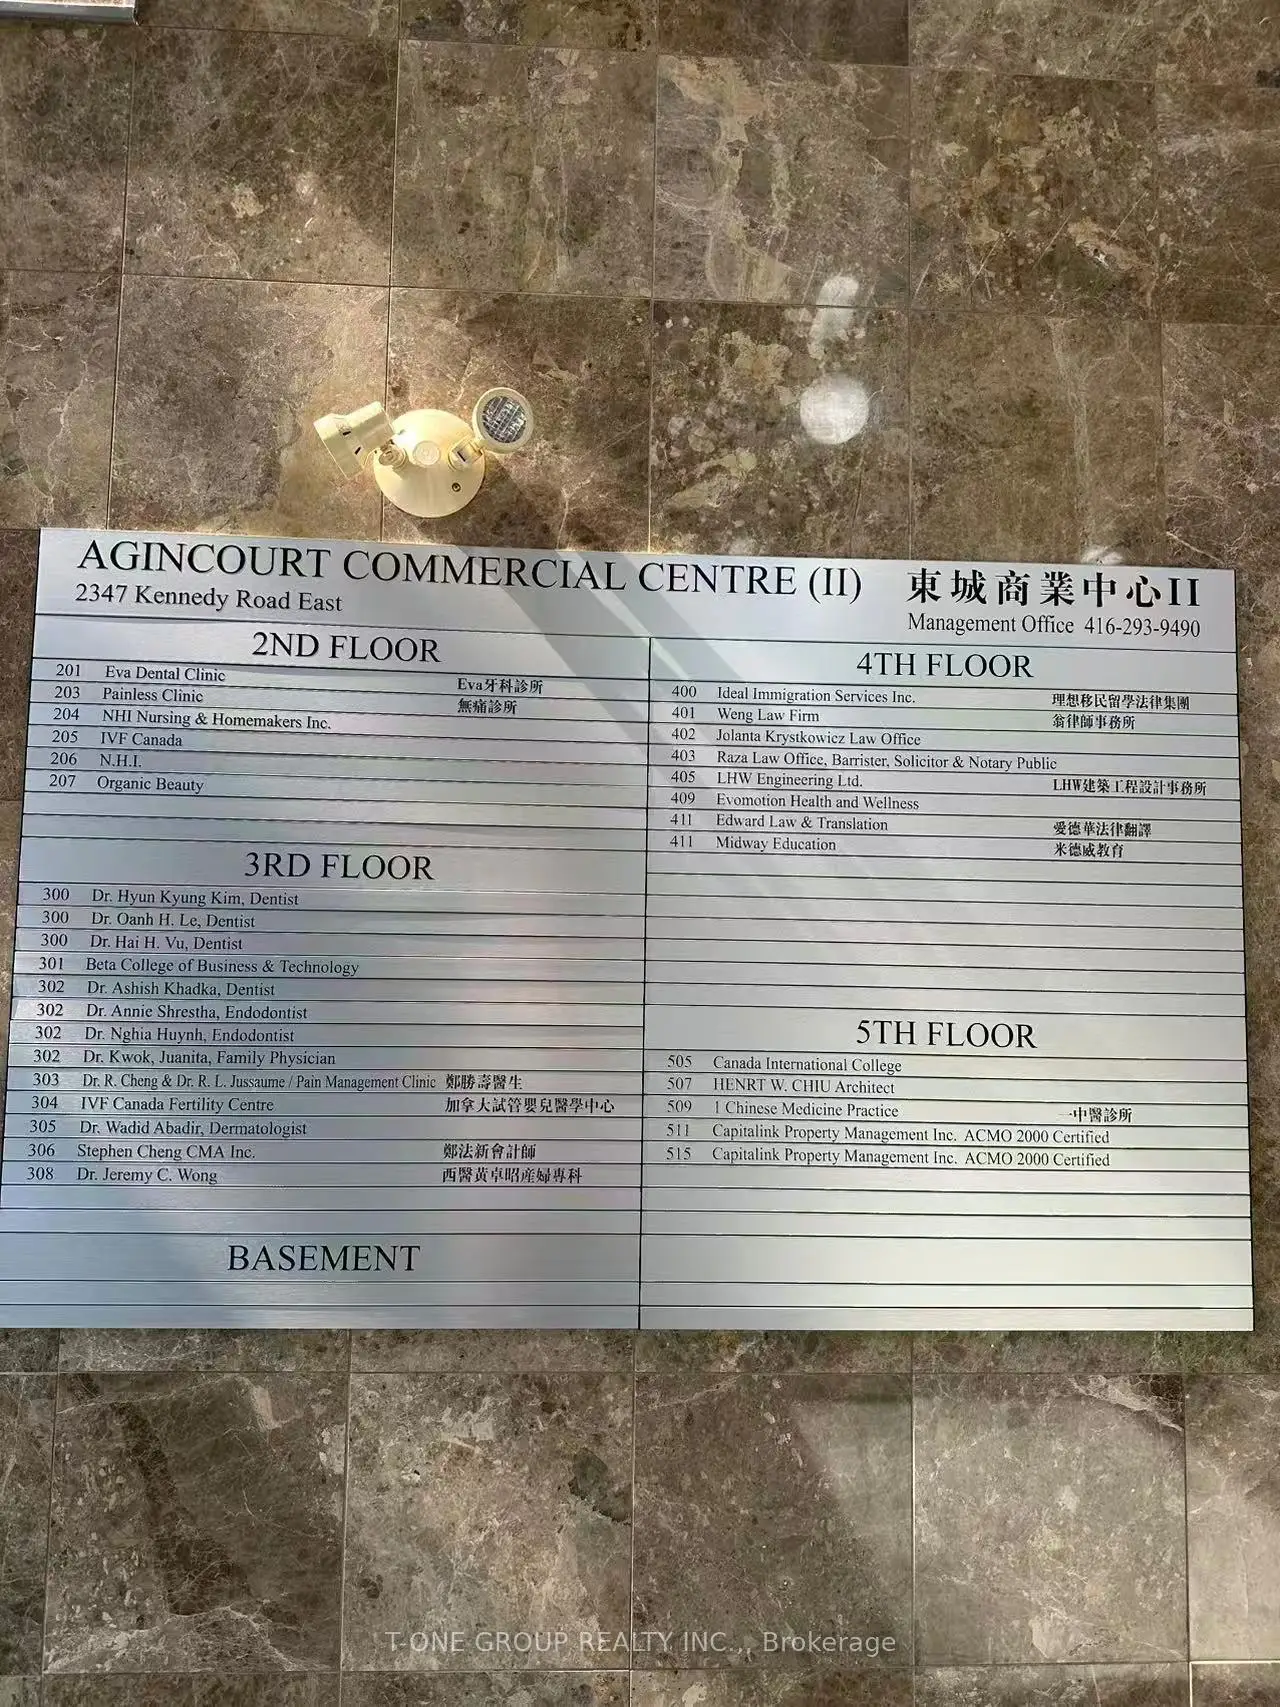 AGINCOURT COMMERCIAL CENTRE (II) 東城商業中心II
2347 Kennedy Road East
Management Office 416-293-9490
2ND FLOOR
201 Eva Dental Clinic Eva牙科診所
203 Painless Clinic 無痛診所
204 NHI Nursing & Homemakers Inc.
205 IVF Canada
206 N.H.I.
207 Organic Beauty
3RD FLOOR
300 Dr. Hyun Kyung Kim, Dentist
300 Dr. Oanh H. Le, Dentist
300 Dr. Hai H. Vu, Dentist
301 Beta College of Business & Technology
302 Dr. Ashish Khadka, Dentist
302 Dr. Annie Shrestha, Endodontist
302 Dr. Nghia Huynh, Endodontist
302 Dr. Kwok, Juanita, Family Physician
303 Dr. R. Cheng & Dr. R. L. Jussaume / Pain Management Clinic 鄭勝壽醫生
304 IVF Canada Fertility Centre 加拿大試管嬰兒醫學中心
305 Dr. Wadid Abadir, Dermatologist
306 Stephen Cheng CMA Inc. 鄭法新會計師
308 Dr. Jeremy C. Wong 西醫黃卓昭產婦專科
BASEMENT
4TH FLOOR
400 Ideal Immigration Services Inc. 理想移民留學法律集團
401 Weng Law Firm 翁律師事務所
402 Jolanta Krystkowicz Law Office
403 Raza Law Office, Barrister, Solicitor & Notary Public
405 LHW Engineering Ltd. LHW建築工程設計事務所
409 Evomotion Health and Wellness
411 Edward Law & Translation 愛德華法律翻譯
411 Midway Education 米德威教育
5TH FLOOR
505 Canada International College
507 HENRT W. CHIU Architect
509 1 Chinese Medicine Practice 一中醫診所
511 Capitalink Property Management Inc. ACMO 2000 Certified
515 Capitalink Property Management Inc. ACMO 2000 Certified
T-ONE GROUP REALTY INC., Brokerage